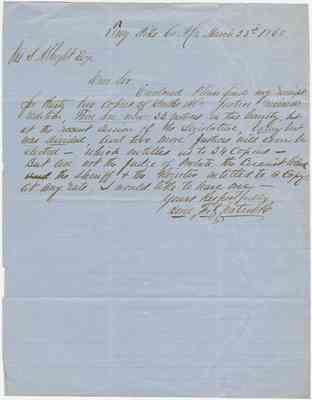 Troy Pike Co. Ala March 23rd 1860
Wm S. Albright Esq.
Dear Sir
Enclosed Please find my receipt
for thirty two copies of
Justice
There are now 32 justices in this County, but
at the recent session of the Legislature, County beat
was divided and two more Justices will soon be
elected — which entitles us to 34 Copies —
But are not the Judge of Probate, the Circuit Clerk
the Sheriff & the Register entitled to a Copy
at any rate I would like to have one —
Yours Respectfully